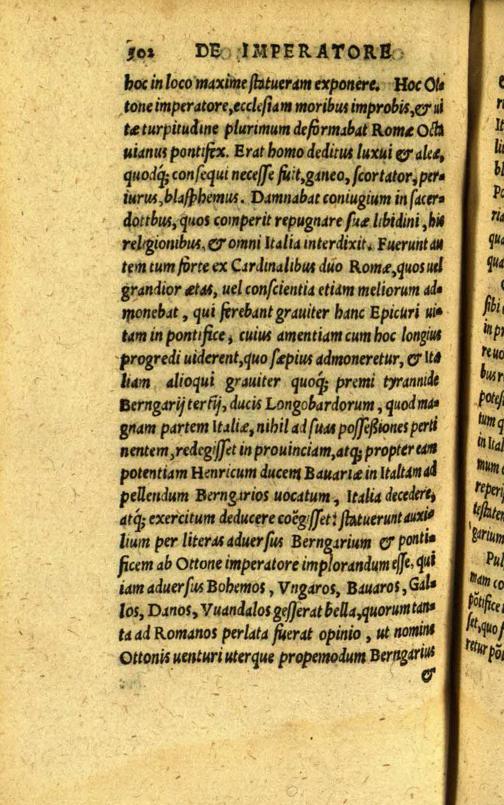 302 DE IMPERATORE
hoc in loco maxime statueram exponere. Hoc Ot-
tone imperatore, ecclesiam moribus improbis, & ui
tæ turpitudine plurimum deformabat Romæ Octa
uianus pontifex. Erat homo deditus luxui & aleæ,
quodq; consequi necesse fuit, ganeo, scortator, per-
iurus, blasphemus. Damnabat coniugium in sacer-
dotibus, quos comperit repugnare suæ libidini, his
religionibus, & omni Italia interdixit. Fuerunt au
tem tum forte ex Cardinalibus duo Romæ, quos uel
grandior ætas, uel conscientia etiam meliorum ad-
monebat, qui ferebant grauiter hanc Epicuri ui-
tam in pontifice, cuius amentiam cum hoc longius
progredi uiderent, quo sæpius admoneretur, & Ita
liam alioqui grauiter quoq; premi tyrannide
Berngarij tertij, ducis Longobardorum, quod ma-
gnam partem Italiæ, nihil ad suas possessiones perti
nentem, redegisset in prouinciam, atq; propter eam
potentiam Henricum ducem Bauariæ in Italiam ad
pellendum Berngarios uocatum, Italia decedere,
atq; exercitum deducere coëgisset: statuerunt auxi-
lium per literas aduersus Berngarium & ponti-
ficem ab Ottone imperatore implorandum esse, qui
iam aduersus Bohemos, Vngaros, Bauaros, Gal-
los, Danos, Vuandalos gesserat bella, quorum tan-
ta ad Romanos perlata fuerat opinio, ut nomine
Ottonis uenturi uterque propemodum Berngarius
&